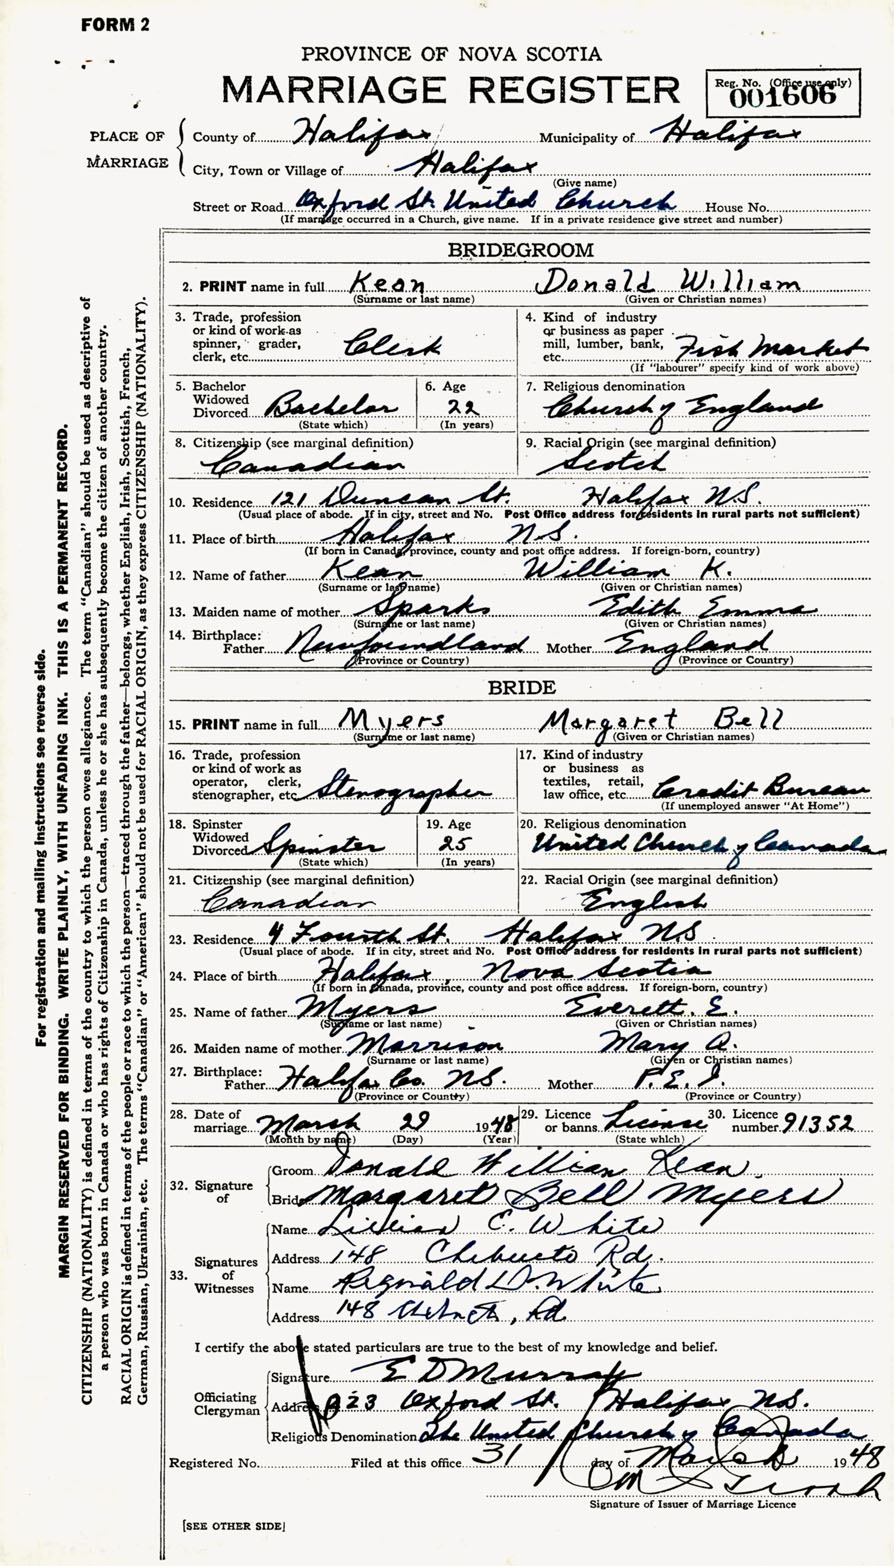 FORM 2
PROVINCE OF NOVA SCOTIA
MARRIAGE REGISTER
Reg. No. (Office use only)
001606
PLACE OF MARRIAGE
County of Halifax Municipality of Halifax
City, Town or Village of Halifax
(Give name)
Street or Road Oxford St. United Church House No.
(If marriage occurred in a Church, give name. If in a private residence give street and number)
BRIDEGROOM
2. PRINT name in full Kean Donald William
(Surname or last name) (Given or Christian names)
3. Trade, profession
or kind of work as
spinner, grader,
clerk, etc. Clerk
4. Kind of industry
or business as paper
mill, lumber, bank,
etc. Fish Market
(If "labourer" specify kind of work above)
5. Bachelor
Widowed
Divorced Bachelor
(State which)
6. Age
22
(In years)
7. Religious denomination
Church of England
8. Citizenship (see marginal definition)
Canadian
9. Racial Origin (see marginal definition)
Scotch
10. Residence 121 Duncan St. Halifax N.S.
(Usual place of abode. If in city, street and No. Post Office address for residents in rural parts not sufficient)
11. Place of birth Halifax N.S.
(If born in Canada, province, county and post office address. If foreign-born, country)
12. Name of father Kean William K.
(Surname or last name) (Given or Christian names)
13. Maiden name of mother Sparks Edith Emma
(Surname or last name) (Given or Christian names)
14. Birthplace:
Father Newfoundland Mother England
(Province or Country) (Province or Country)
BRIDE
15. PRINT name in full Myers Margaret Bell
(Surname or last name) (Given or Christian names)
16. Trade, profession
or kind of work as
operator, clerk,
stenographer, etc. Stenographer
17. Kind of industry
or business as
textiles, retail,
law office, etc. Credit Bureau
(If unemployed answer "At Home")
18. Spinster
Widowed
Divorced Spinster
(State which)
19. Age
25
(In years)
20. Religious denomination
United Church of Canada
21. Citizenship (see marginal definition)
Canadian
22. Racial Origin (see marginal definition)
English
23. Residence 4 Fourth St. Halifax NS
(Usual place of abode. If in city, street and No. Post Office address for residents in rural parts not sufficient)
24. Place of birth Halifax, Nova Scotia
(If born in Canada, province, county and post office address. If foreign-born, country)
25. Name of father Myers Everett. E.
(Surname or last name) (Given or Christian names)
26. Maiden name of mother Morrison Mary A.
(Surname or last name) (Given or Christian names)
27. Birthplace:
Father Halifax Co. N.S. Mother P.E.I.
(Province or County) (Province or Country)
28. Date of
marriage March 29 1948
(Month by name) (Day) (Year)
29. Licence
or banns License
(State which)
30. Licence
number 91352
32. Signature of
Groom Donald William Kean
Bride Margaret Bell Myers
33. Signatures of Witnesses
Name Lillian C. White
Address 148 Chebucto Rd.
Name Reginald D. White
Address 148 Rd
I certify the above stated particulars are true to the best of my knowledge and belief.
Officiating Clergyman
Signature E D Murray
Address 323 Oxford St. Halifax N.S.
Religious Denomination The United Church of Canada
Registered No. Filed at this office 31 day of March 1948
Signature of Issuer of Marriage Licence
[SEE OTHER SIDE]
For registration and mailing instructions see reverse side.
MARGIN RESERVED FOR BINDING. WRITE PLAINLY, WITH UNFADING INK. THIS IS A PERMANENT RECORD.
CITIZENSHIP (NATIONALITY) is defined in terms of the country to which the person owes allegiance. The term "Canadian" should be used as descriptive of
a person who was born in Canada or who has rights of Citizenship in Canada, unless he or she has subsequently become the citizen of another country.
RACIAL ORIGIN is defined in terms of the people or race to which the person—traced through the father—belongs, whether English, Irish, Scottish, French,
German, Russian, Ukrainian, etc. The terms "Canadian" or "American" should not be used for RACIAL ORIGIN, as they express CITIZENSHIP (NATIONALITY).